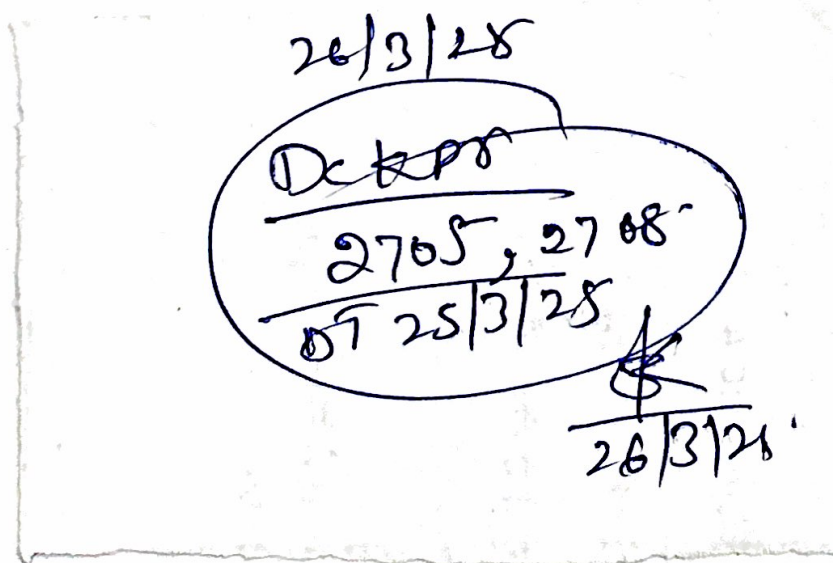 26/3/25
Dc KPR
2705, 2708
DT 25/3/25
26/3/25